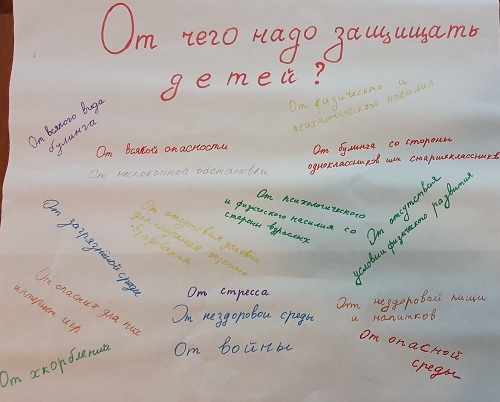 От чего надо защищать
детей?
От физического и
психологического насилия
От всякого вида
булинга
От всякой опасности
От неспокойной обстановки
От булинга со стороны
одноклассников или старшеклассников
От психологического
и физического насилия со
стороны взрослых
От отсутствия
условий физического развития
От отсутствия условий
для получения хорошего
образования
От загрязнённой среды
От опасних для нас
интернет игр
От стресса
От нездоровой среды
От войны
От нездоровой пищи
и напитков
От опасной
среды
От хкорблений